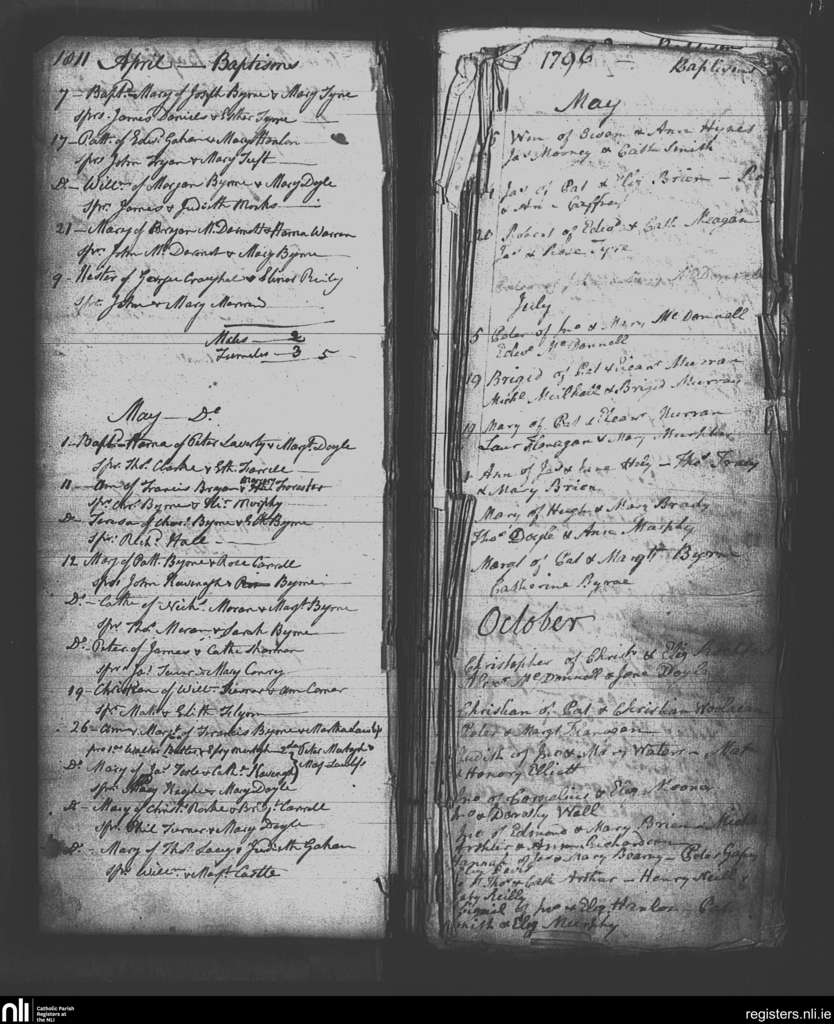 1811 April — Baptisms
7 — Bapt. Mary of Joseph Byrne & Mary Tyne
sprs. James Daniels & Esther Tyrne
17 — Patt. of Edwd. Gahan & Mary Hanlon
sprs John Fryar & Mary Tuft
Do — Willm. of Morgan Byrne & Mary Doyle
sprs. James & Judith Monks
21 — Mary of Bryan McDermott & Warren
sprs. John McDermot & Mary Byrne
9 — Hester of George & Elinor Reily
sprs. John & Mary
Males — 2
Females — 3 5
May — Do
1 — Bapt. of Peter Laverty & Margt. Doyle
sprs. Thos. Clarke & Esth. Farrell
11 — Ann of Francis Bryan & Forester
sprs. Chrs. Byrne & Eliz. Murphy
Do — Teresa of Chas. Byrne & Eth. Byrne
sprs. Richd. Hall
12 Mary of Patt. Byrne & Rose Carroll
sprs John Kavanagh & Byrne
Do — Cathe. of Nichs. Moran & Margt. Byrne
sprs. Thos. Moran & Sarah Byrne
Do — Peter of James & Cathe.
sprs. Jas. & Mary Conry
19 — Christian of Willm. & Ann Comer
sprs. Matt & Edith
26 — Ann & Margt. of Francis Byrne & Martha
Walter Butler & 2nd Peter Murtagh &
Do. Mary of Jas. Toole & Cathe. Kavengh
sprs. Mary Keighe & Mary Doyle
Do — Mary of Christr. Rorke & Bridgt. Carroll
sprs. Phil. Turner & Mary Doyle
Do — Mary of Thos. Lacy & Judith Gahan
sprs. Willm. & Margt. Castle
1796 — Baptisms
Baptisms
May
5 Wm of & Ann Hynes
Jas. Mooney & Cath Smith
Jas of Pat & Eliz Brien —
& Ann Gaffney
20 Robert of Edwd. & Cath. Meagan
Jas &
July
5 Peter of Jno & Mary McDonnell
Edwd McDonnell
19 Brigid of Pat & Eleanr Murran
Michl & Brigid Murray
19 Mary of Pat & Eleanr Murran
Laur Flanagan & Mary Murphy
1 Ann of Jas & Jane — Thos Tracy
& Mary Brien
Mary of Hugh & Mary Brady
Thos Doyle & Ann Murphy
Margt of Pat & Margtt Byrne
Catherine Byrne
October
Christopher of Christr & Eliz
McDonnell & Jane Doyle
Christian of Pat & Christian
Peter & Margt Flanagan
Judith of Jno & Mary Waters — Mat
& Honory Elliott
Jno of Cornelius & Eliz Noonar
Jno & Dorothy Wall
Jno of Edmund & Mary Brien — Michl
Arthur & Ann Richardson
Hannah of Jas & Mary — Peter

Thos & Cath Arthur — Henry Neill &
Caty Reilly
of Jno & Eliz Hanlon — Pat
Smith & Eliz Murphy
nli
Catholic Parish
Registers at
the NLI
registers.nli.ie